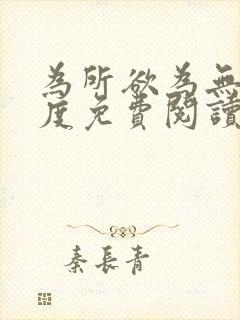 為所欲為無
度免費閱讀
秦長青